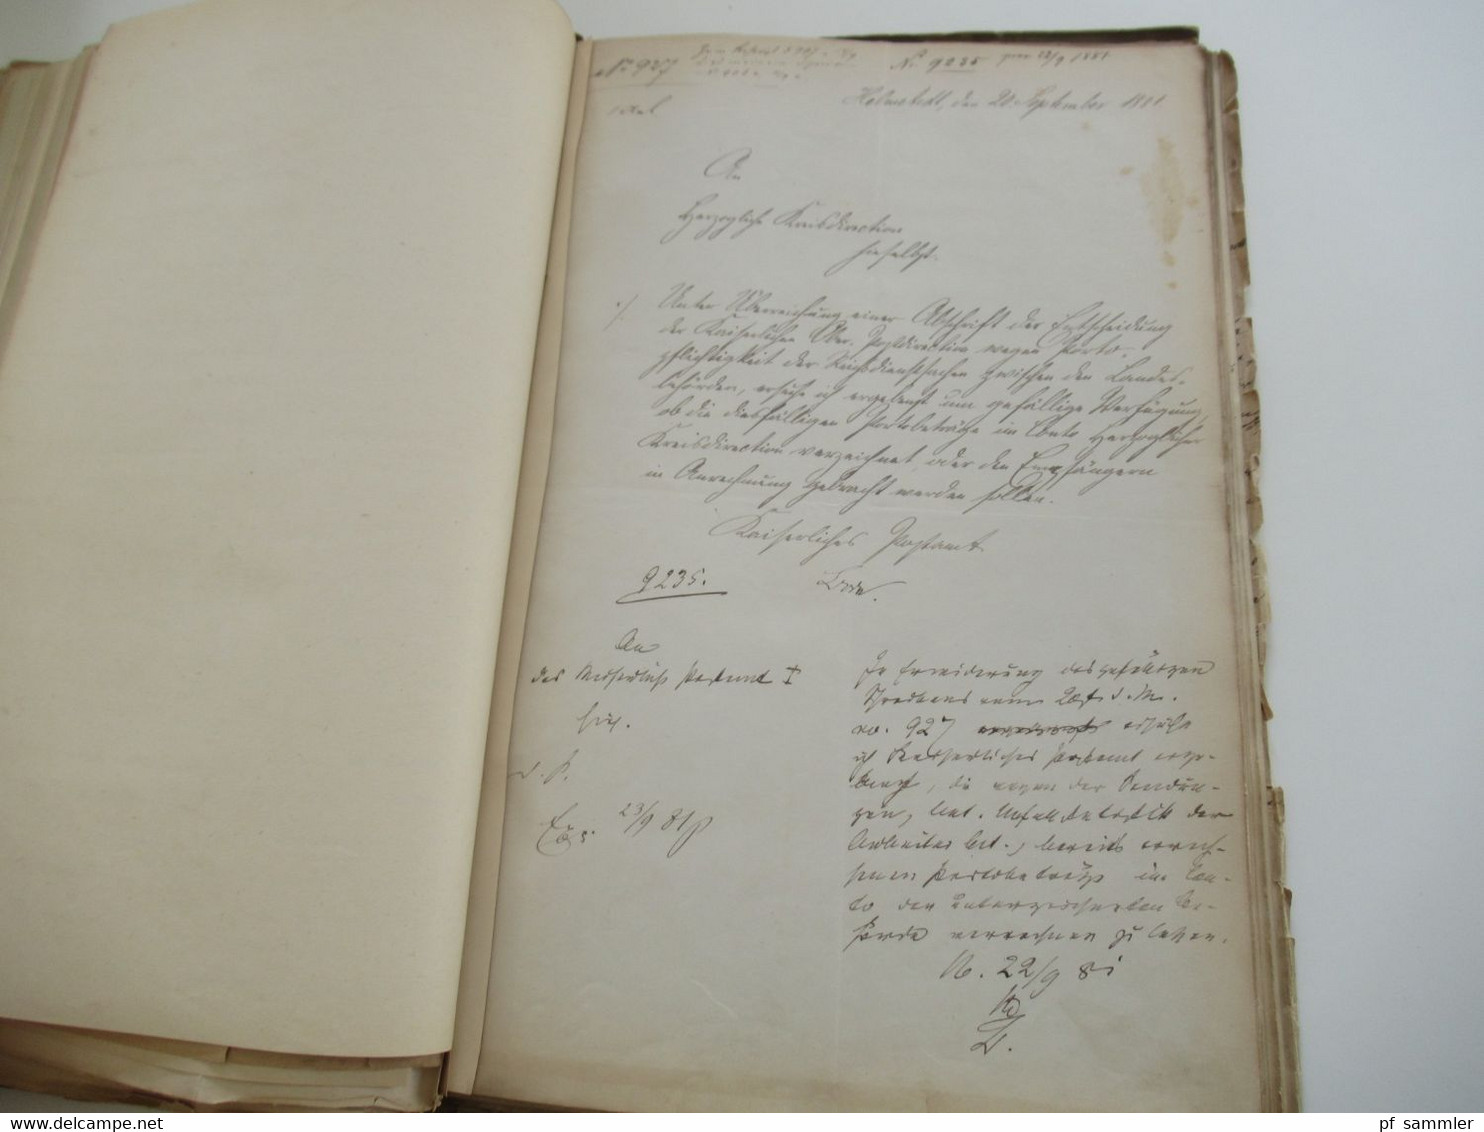 No 927
No 9235 22/9 1881
Helmstedt, den 20. September 1881
An
Herzogliche Kreisdirection
hieselbst.
./.
Unter Überreichung einer Abschrift der Entscheidung
der Kaiserlichen Ober-Postdirection wegen Porto-
pflichtigkeit der Reichsdienstsachen zwischen den Landes-
behörden, ersuche ich ergebenst um gefällige Verfügung,
ob die diesfälligen Portobeträge im Conto Herzoglicher
Kreisdirection verzeichnet oder den Empfängern
in Anrechnung gebracht werden sollen.
Kaiserliches Postamt
9235.
An
das Kaiserliche Postamt I
hies.
In Erwiderung des gefälligen
Schreibens vom 20st. d. M.
no. 927 ersuche
ich Kaiserliches Postamt erge-
benst, die wegen der Sendun-
gen, bet. Unfallstatistik der
Arbeiter bet., bereits erwach-
senen Portobeträge im Con-
to der unterzeichneten Be-
hörde verrechnen zu lassen.
H. 22/9 81
23/9 81
pf sammler